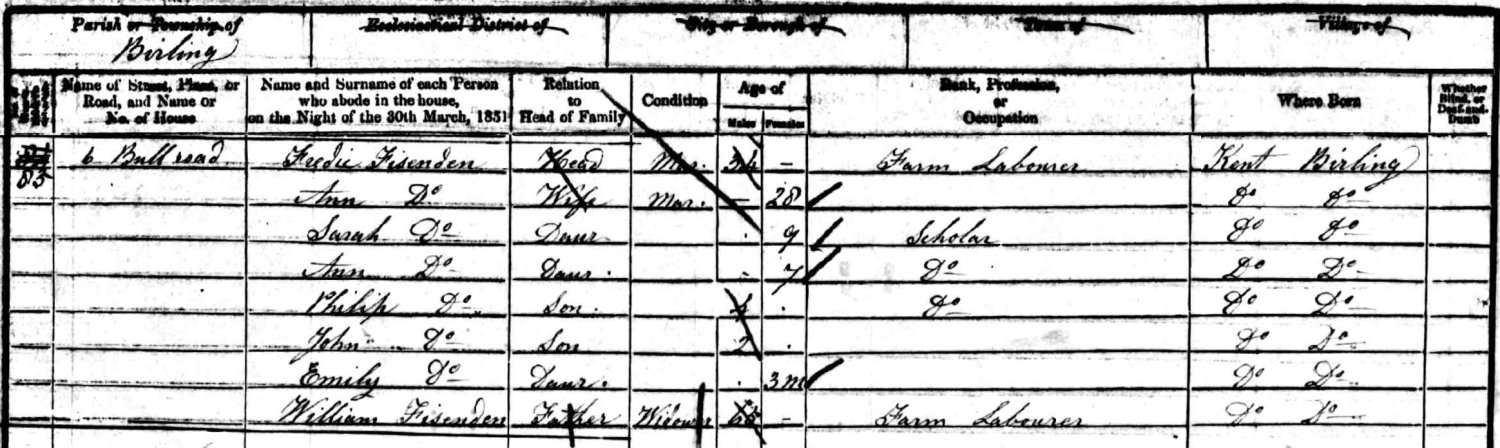 Parish or Township of Ecclesiastical District of City or Borough of Town of Village of
Birling
Name of Street, Place, or Road, and Name or No. of House Name and Surname of each Person who abode in the house, on the Night of the 30th March, 1851 Relation to Head of Family Condition Age of Males Females Rank, Profession, or Occupation Where Born Whether Blind, or Deaf-and-Dumb
83 6 Bull road Fredic Fisenden Head Mar. - Farm Labourer Kent Birling
Ann Do Wife Mar. - 28 Do Do
Sarah Do Daur 9 Scholar Do Do
Ann Do Daur. - 7 Do Do Do
Philip Do Son. 4 Do Do Do
John Do Son 2 Do Do
Emily Do Daur. 3m Do Do
William Fisenden Father Widower - Farm Labourer Do Do